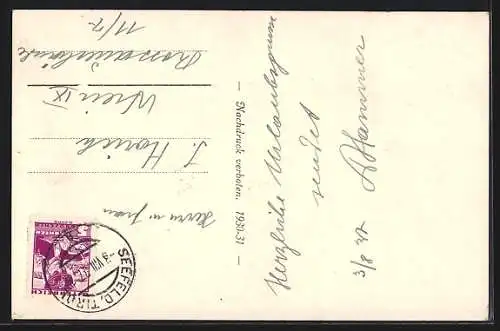 Herzliche Urlaubsgrüsse
sendet
A Hammer
3/8 37
— Nachdruck verboten. 1930-31 —
Herrn u. Frau
J. Horich
Wien IX
11/7
SEEFELD, TIROL
-3.VIII.37